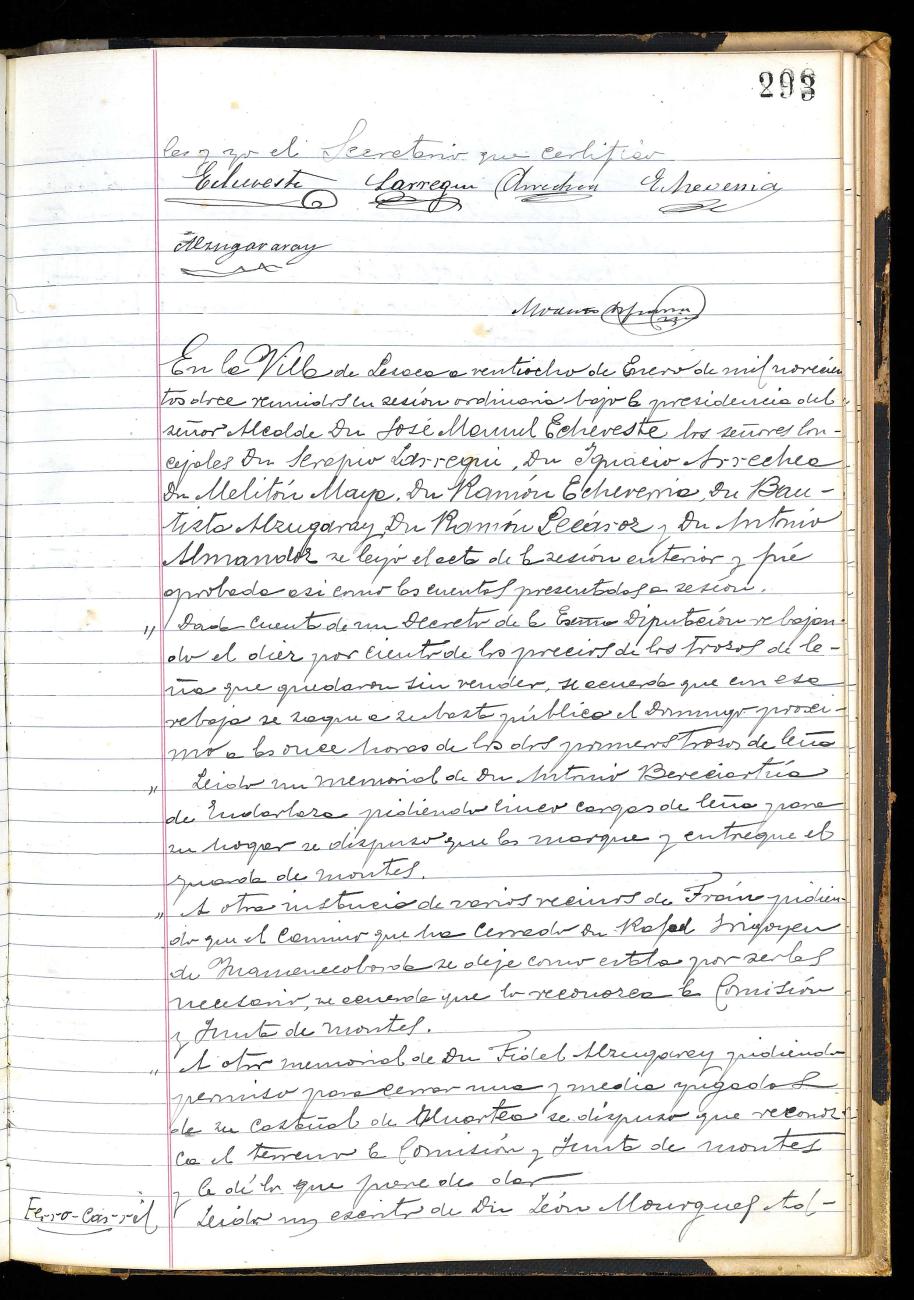 293
les y yo el Secretario que certifico
Echeveste Larregui Arrechea Echeverria
Alzugararay
En la Villa de Lesaca a ventiocho de Enero de mil novecien
tos doce reunidos en sesión ordinaria bajo la presidencia del
señor Alcalde Dn José Manuel Echeveste los señores Con-
cejales Dn Serapio Larregui, Dn Ignacio Arrechea
Dn Melitón Maya, Dn Ramón Echeverria, Dn Bau-
tista Alzugaray, Dn Ramón Lecároz y Dn Antonio
Almandoz se leyó el acta de la sesión anterior y fué
aprobada asi como las cuentas presentadas a sesión.
" Dada cuenta de un Decreto de la Exma Diputación rebajan-
do el diez por ciento de los precios de los trosos de le-
ña que quedaron sin vender, se acuerda que con esa
rebaja se saque a subasta pública el Domingo proxi-
mo a las once horas de los dos primeros trosos de leña
" Leido un memorial de Dn Antonio Bereciartúa
de Endarlaza pidiendo cinco cargas de leña para
su hogar se dispuso que las marque y entregue el
guarda de montes.
" A otra instancia de varios vecinos de Frain pidien-
do que el camino que ha cerrado Dn Rafael Irigoyen
de se deje como esta por serles
necesario, se acuerda que lo reconozca la Comisión
y Junta de montes.
" A otro memorial de Dn Fidel Alzugaray pidiendo
permiso para cerrar una y media yugadas
de su castañal de se dispuso que reconoz-
ca el terreno la Comisión y Junta de montes
y le dé lo que fuere de dar
Ferro-Carril Leido un escrito de Dn León Mourgues sol-